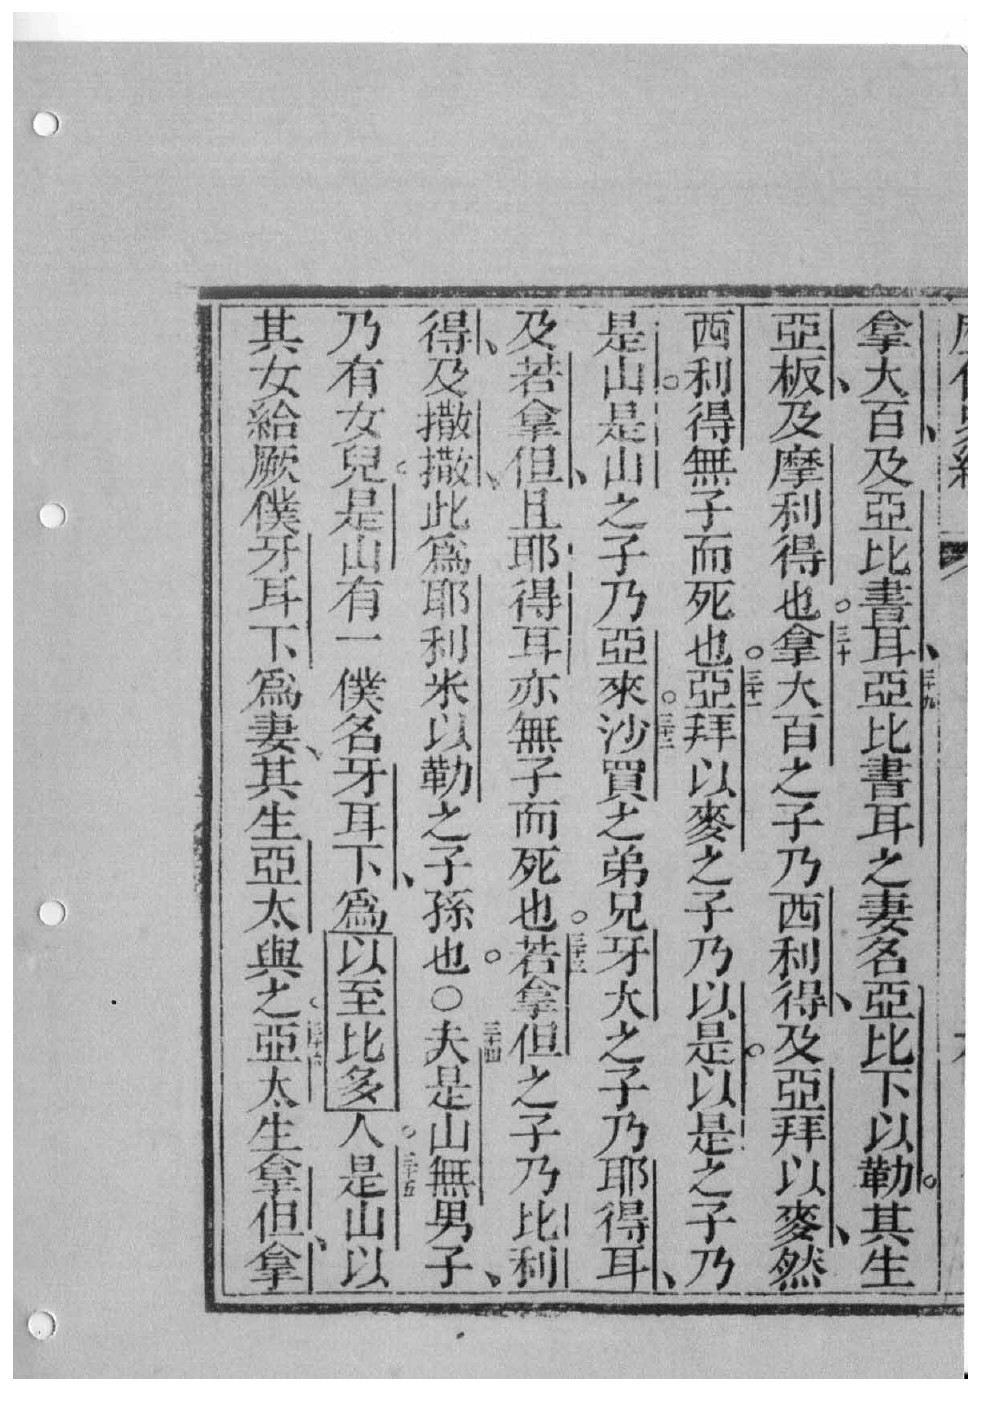 拿大百、及亞比書耳、二十九亞比書耳之妻名亞比下以勒。其生
亞板、及摩利得也。三十拿大百之子乃西利得、及亞拜以麥、然
西利得無子而死也。三十一亞拜以麥之子乃以是。以是之子乃
是山。是山之子乃亞來。三十二沙買之弟兄牙大之子乃耶得耳、
及若拿但、且耶得耳亦無子而死也。三十三若拿但之子乃比利
得、及撒撒、此為耶利米以勒之子孫也。○三十四夫是山無男子、
乃有女兒。是山有一僕名牙耳下、為以至比多人。三十五是山以
其女給厥僕牙耳下為妻、其生亞太與之。三十六亞太生拿但、拿